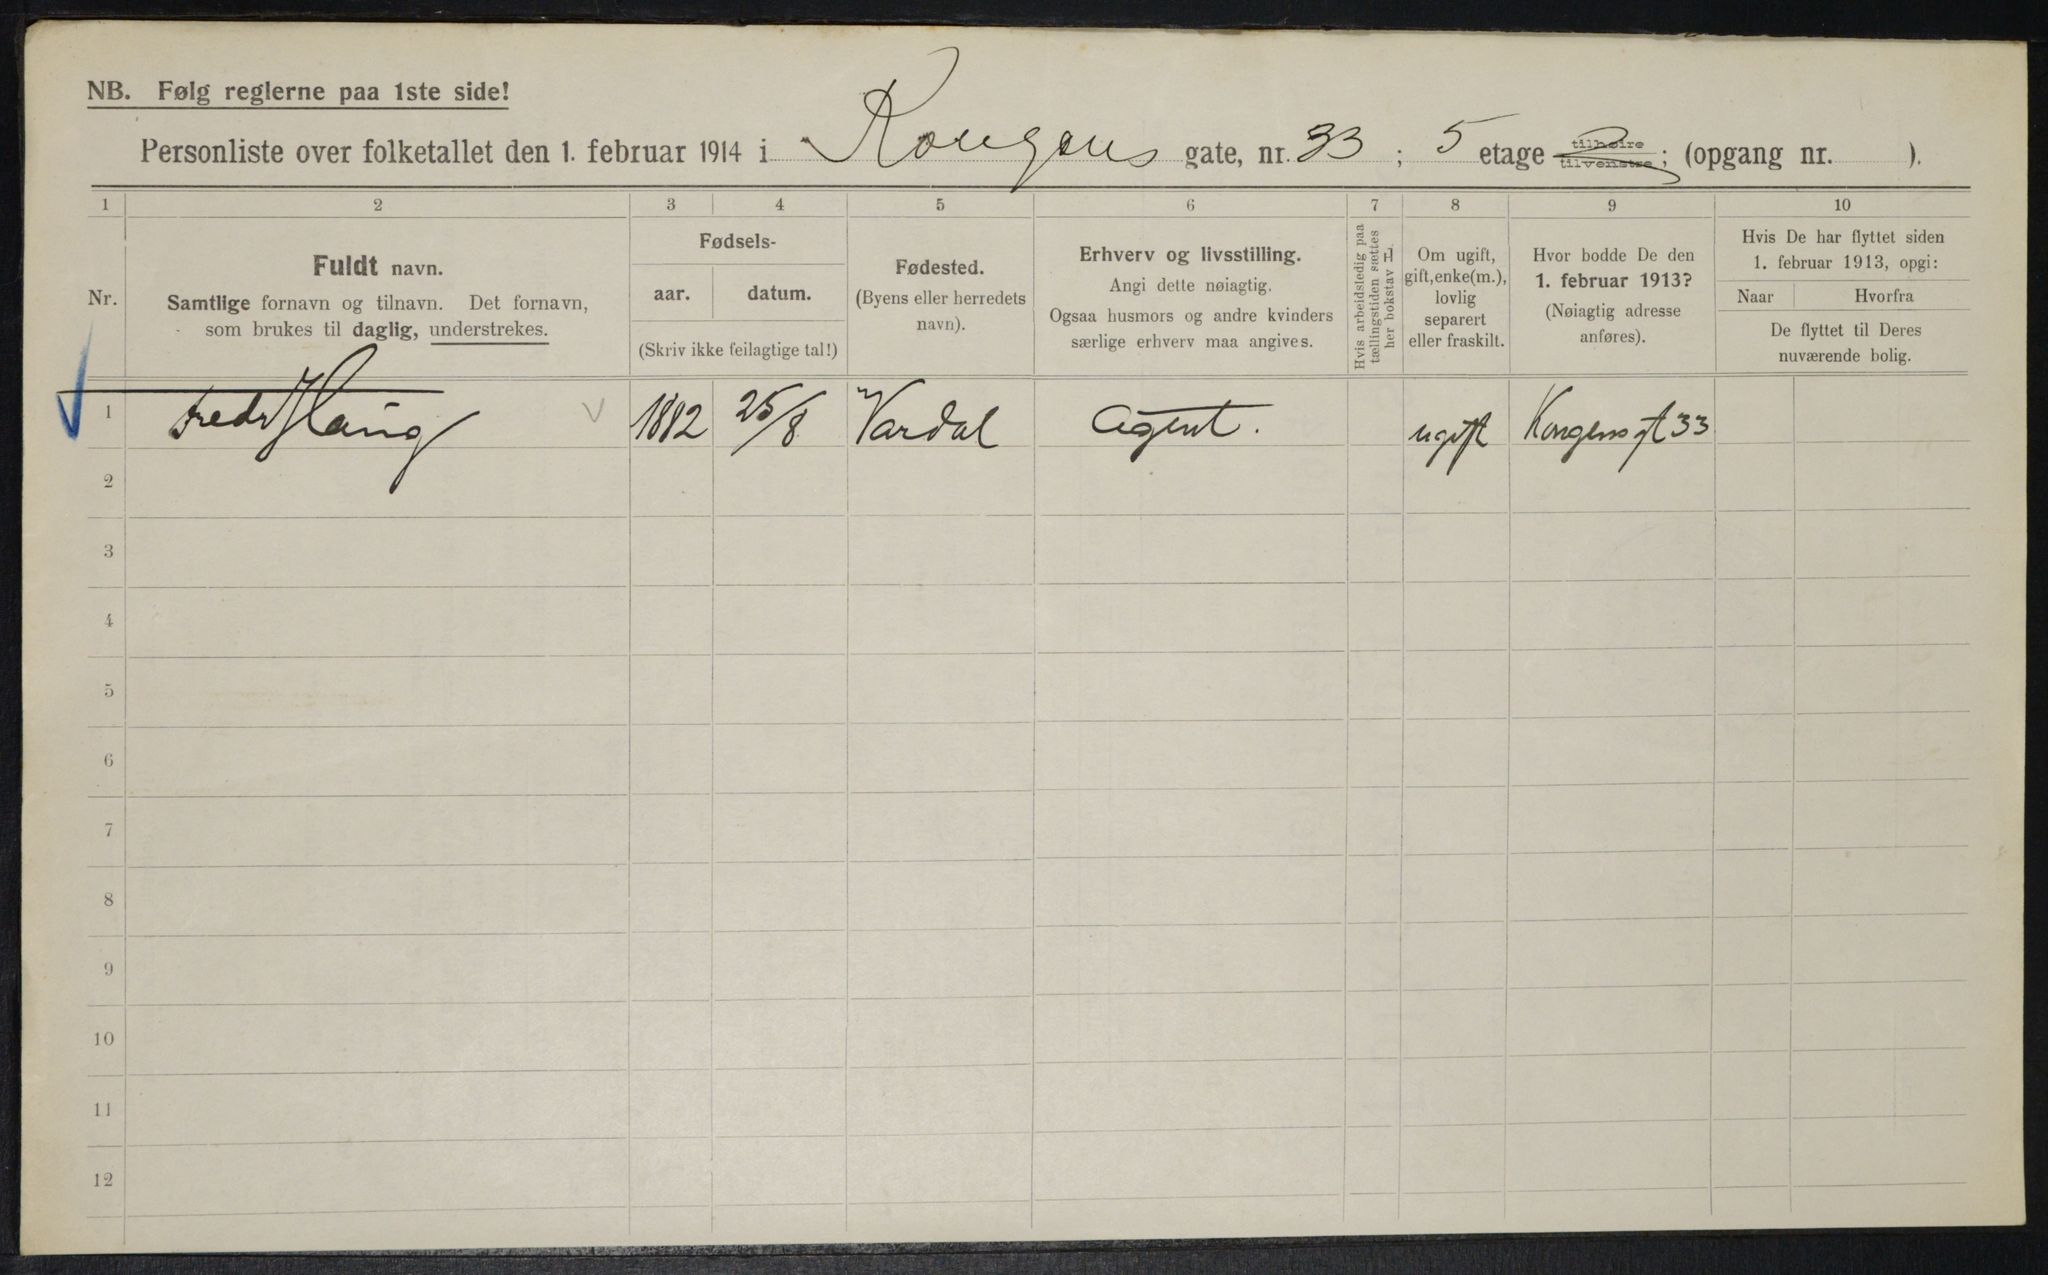 NB. Følg reglerne paa 1ste side!
Personliste over folketallet den 1. februar 1914 i Kongens gate, nr. 33 ; 5 etage tilhøire tilvenstre; (opgang nr. ).
1 2 3 4 5 6 7 8 9 10
Nr.
Fuldt navn.
Samtlige fornavn og tilnavn. Det fornavn,
som brukes til daglig, understrekes.
Fødsels-
aar. datum.
(Skriv ikke feilagtige tal!)
Fødested.
(Byens eller herredets
navn).
Erhverv og livsstilling.
Angi dette nøiagtig.
Ogsaa husmors og andre kvinders
særlige erhverv maa angives.
Hvis arbeidsledig paa
tællingstiden sættes
her bokstav L.
Om ugift,
gift, enke(m.),
lovlig
separert
eller fraskilt.
Hvor bodde De den
1. februar 1913?
(Nøiagtig adresse
anføres).
Hvis De har flyttet siden
1. februar 1913, opgi:
Naar Hvorfra
De flyttet til Deres
nuværende bolig.
1 Fredr Haug 1882 25/8 Vardal Agent. ugift Kongensgt 33
2
3
4
5
6
7
8
9
10
11
12